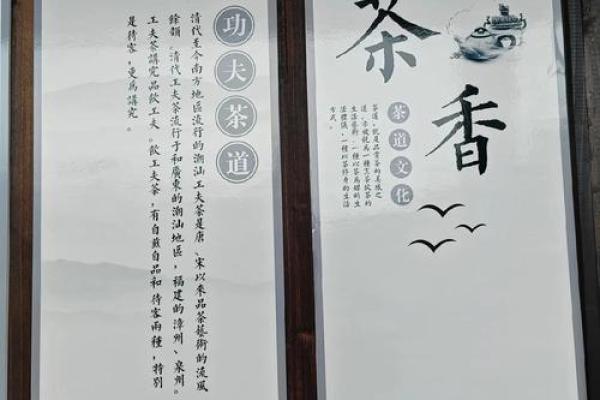 茶香
茶道文化
茶道，就是品賞茶的美感之
道。亦被視為一種烹茶飲茶的
生活藝術，一種以茶為媒的生
活禮儀，一種以茶修身的生活
方式。
功夫茶道
清代至今南方地區流行的潮汕工夫茶是唐、宋以來品茶藝術的流風
餘韻。清代工夫茶流行于和廣東的潮汕地區，福建的漳州、泉州。
工夫茶講究品飲工夫。飲工夫茶，有自煎自品和待客兩種，特別
是待客，更為講究。